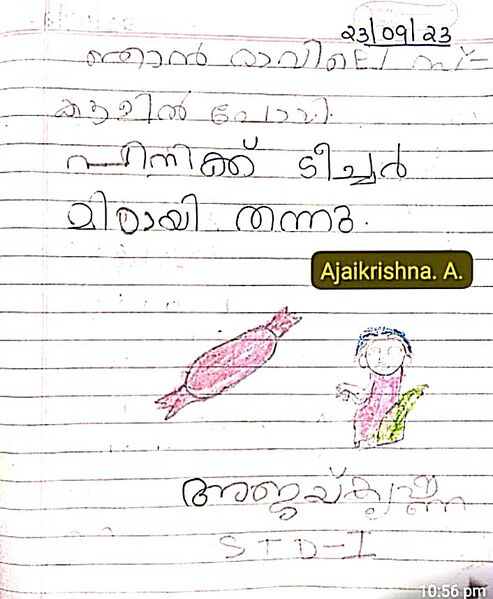 23/09/23
ഞാൻ രാവിലെ സ്-
കൂളിൽ പോയി.
എനിക്ക് ടീച്ചർ
മിഠായി തന്നു.
Ajaikrishna. A.
അജയ്കൃഷ്ണ
STD-I
10:56 pm